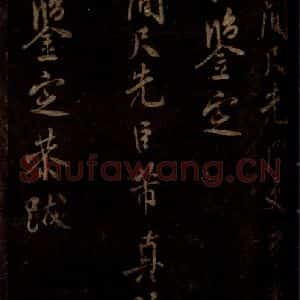 閒尺先
鑒定
閒尺先臣芾真
鑒定恭跋
Shufawang.CN